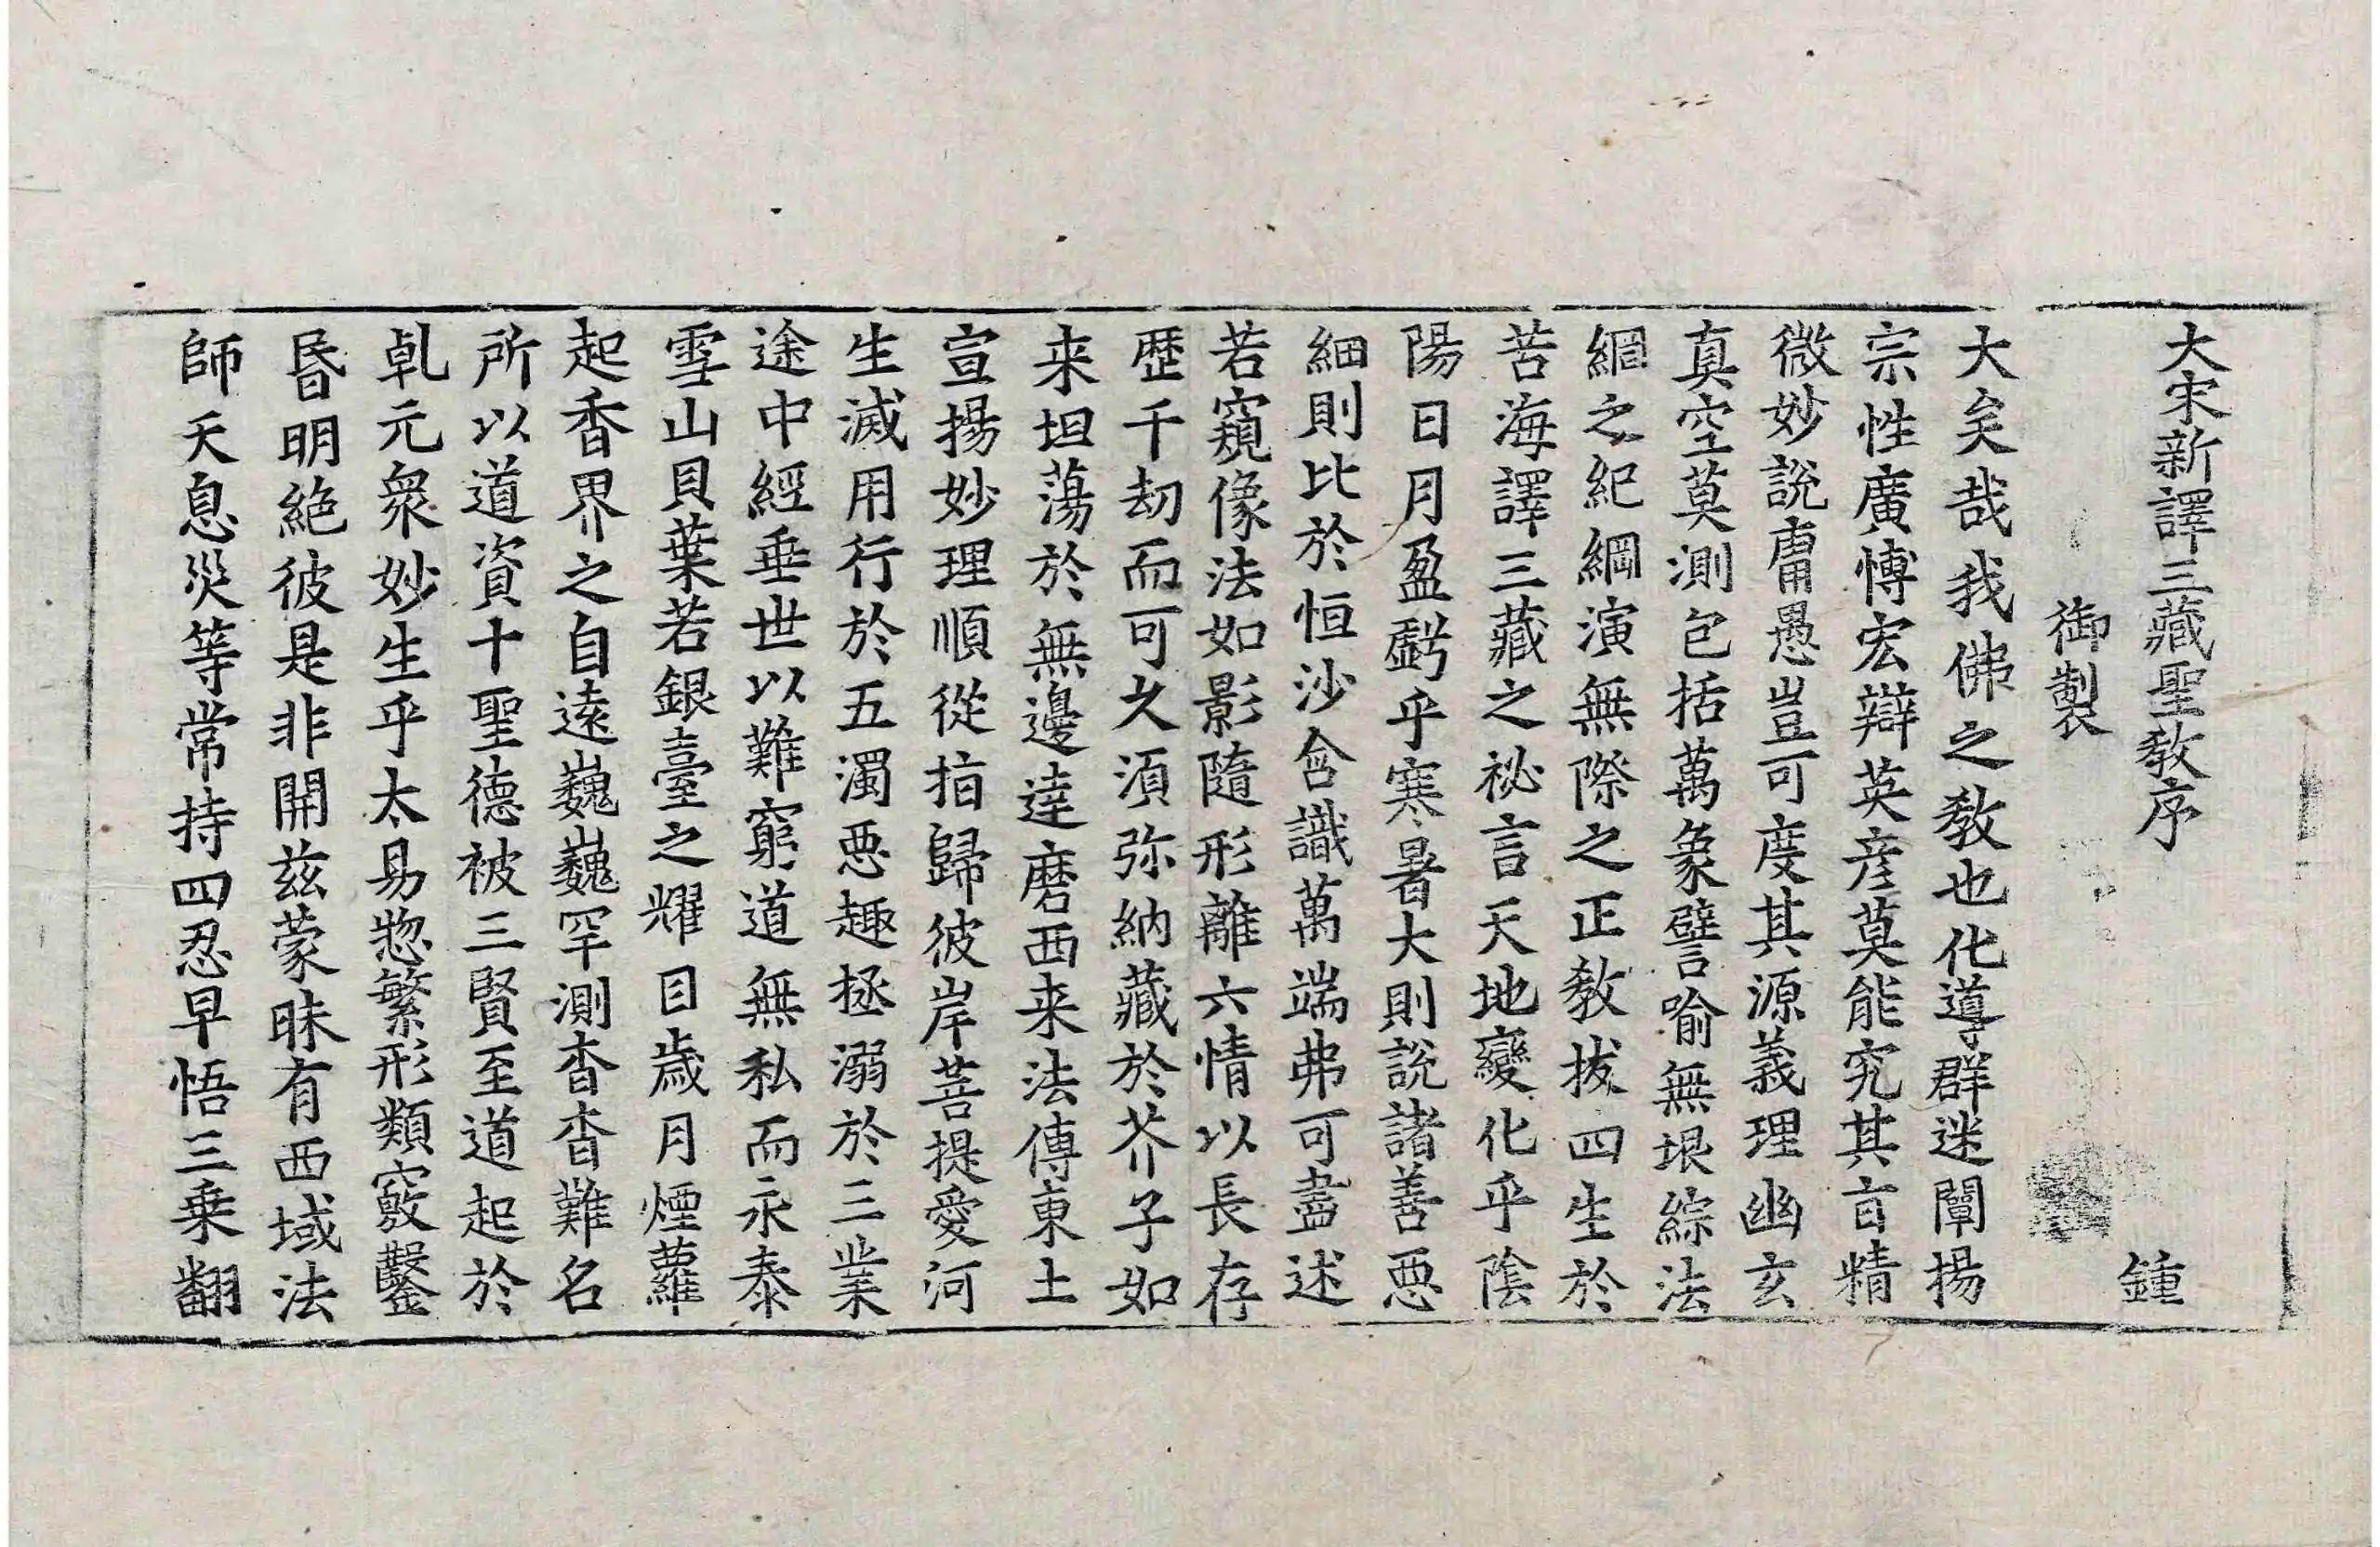 大宋新譯三藏聖教序
鍾
御製
大矣哉我佛之教也化導群迷闡揚
宗性廣愽宏辯英彦莫能究其㫖精
微妙說庸愚豈可度其源義理幽玄
真空莫測包括萬象譬喻無垠綜法
綱之紀綱演無際之正教拔四生於
苦海譯三藏之祕言天地變化乎陰
陽日月盈虧乎寒暑大則說諸善惡
細則比於恒沙含識萬端弗可盡述
若窺像法如影隨形離六情以長存
歷千劫而可久須弥納藏於芥子如
来坦蕩於無邊達磨西来法傳東土
宣揚妙理順從指歸彼岸菩提愛河
生滅用行於五濁惡趣拯溺於三業
途中經垂世以難窮道無私而永泰
雪山貝葉若銀臺之耀目歲月煙蘿
起香界之自遠巍巍罕測杳杳難名
所以道資十聖德被三賢至道起於
乹元衆妙生乎太易惣繁形類竅鑿
昏明絶彼是非開兹蒙昧有西域法
師天息災等常持四忍早悟三乗翻